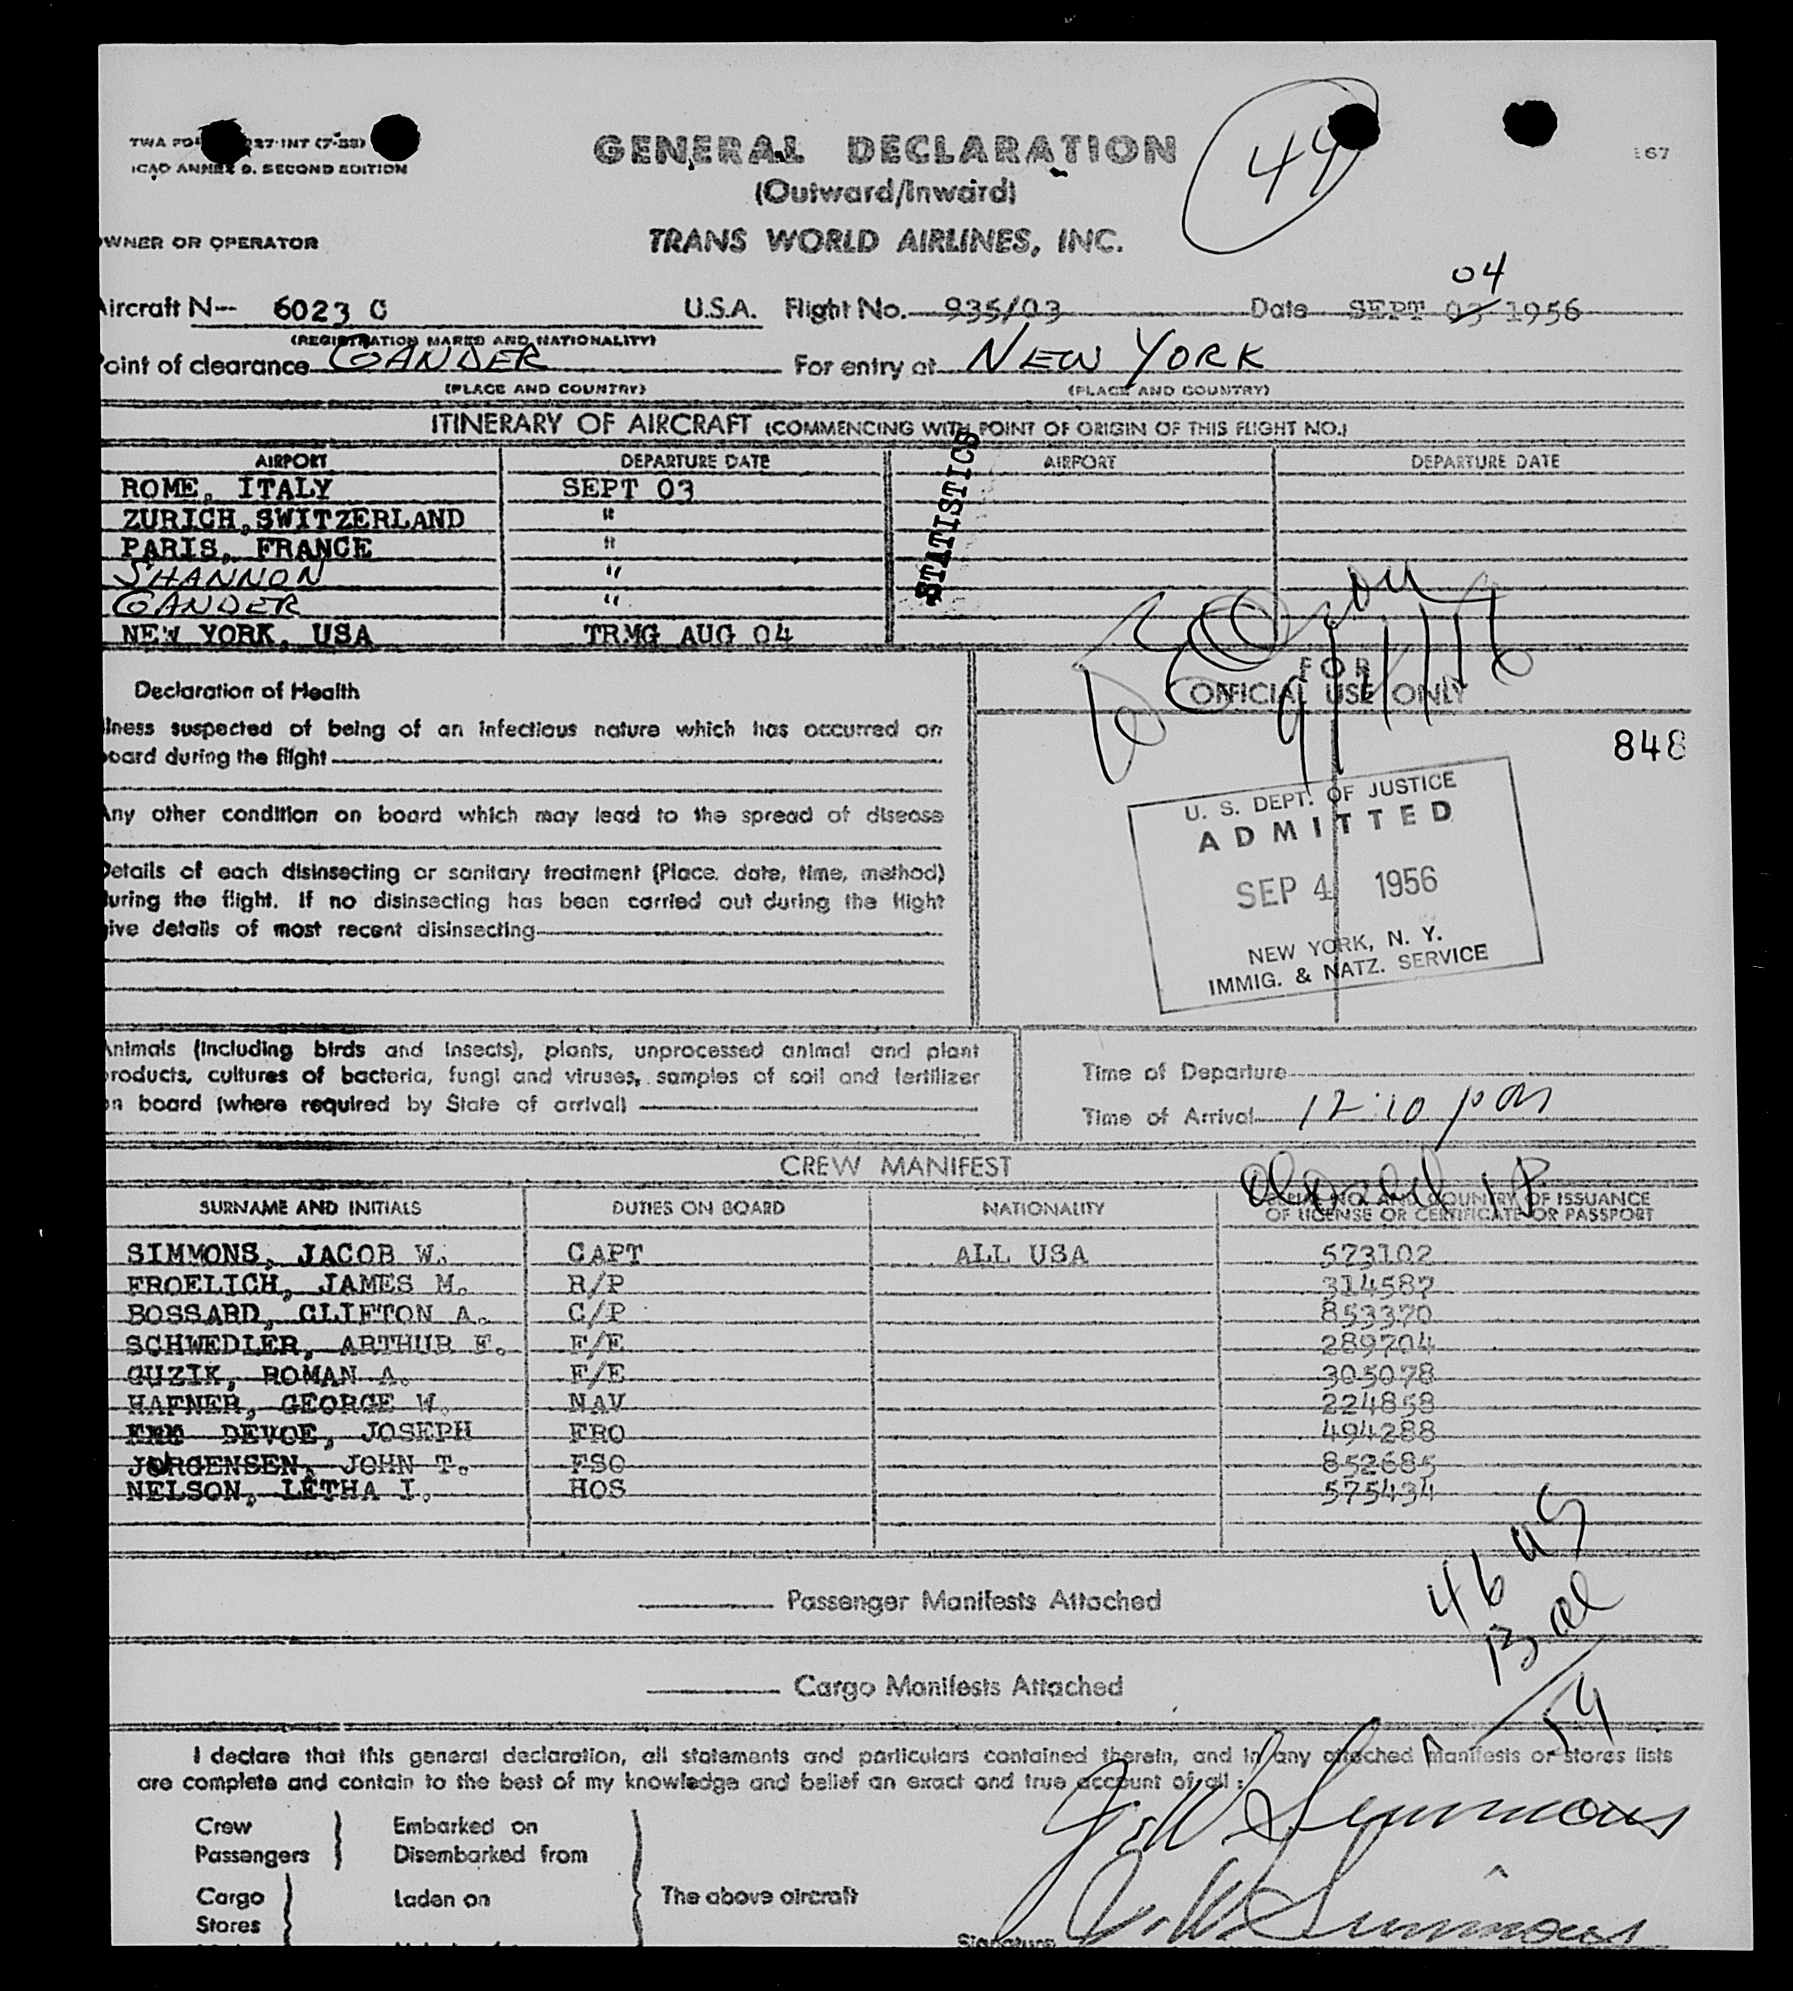 44
TWA FO 27-INT (7-55)
ICAO ANNEX 9. SECOND EDITION
GENERAL DECLARATION
(Outward/Inward)
TRANS WORLD AIRLINES, INC.
67
OWNER OR OPERATOR
04
Aircraft N-- 6023 C U.S.A. Flight No. 935/03 Date SEPT 03 1956
(REGISTRATION MARKS AND NATIONALITY)
Point of clearance GANDER For entry at NEW YORK
(PLACE AND COUNTRY) (PLACE AND COUNTRY)
ITINERARY OF AIRCRAFT (COMMENCING WITH POINT OF ORIGIN OF THIS FLIGHT NO.)
AIRPORT DEPARTURE DATE AIRPORT DEPARTURE DATE
ROME, ITALY SEPT 03
ZURICH, SWITZERLAND "
PARIS, FRANCE "
SHANNON "
GANDER "
NEW YORK, USA TRMG AUG 04
STATISTICS
Declaration of Health
FOR
OFFICIAL USE ONLY
Illness suspected of being of an infectious nature which has occurred on
board during the flight
848
Any other condition on board which may lead to the spread of disease
Details of each disinsecting or sanitary treatment (Place, date, time, method)
during the flight. If no disinsecting has been carried out during the flight
give details of most recent disinsecting
U. S. DEPT. OF JUSTICE
ADMITTED
SEP 4 1956
NEW YORK, N. Y.
IMMIG. & NATZ. SERVICE
Animals (including birds and insects), plants, unprocessed animal and plant
products, cultures of bacteria, fungi and viruses, samples of soil and fertilizer
on board (where required by State of arrival)
Time of Departure
Time of Arrival 12:10 pm
CREW MANIFEST
SURNAME AND INITIALS DUTIES ON BOARD NATIONALITY SERIAL NO. AND COUNTRY OF ISSUANCE
OF LICENSE OR CERTIFICATE OR PASSPORT
SIMMONS, JACOB W. CAPT ALL USA 573102
FROELICH, JAMES M. R/P 314587
BOSSARD, CLIFTON A. C/P 853370
SCHWEDLER, ARTHUR F. F/E 289704
GUZIK, ROMAN A. F/E 305078
HAFNER, GEORGE W. NAV 224858
DEVOE, JOSEPH FRO 494288
JORGENSEN, JOHN T. FSO 852685
NELSON, LETHA I. HOS 575434
46 us
13 al
Passenger Manifests Attached
Cargo Manifests Attached
I declare that this general declaration, all statements and particulars contained therein, and in any attached manifests or stores lists
are complete and contain to the best of my knowledge and belief an exact and true account of all:
J. W. Simmons
Crew Embarked on
Passengers Disembarked from
Cargo Laden on The above aircraft
Stores
Signature J. W. Simmons